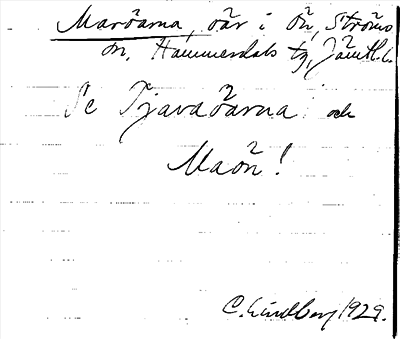 Maröarna, öar i ån, Ströms
ån, Hammerdals tg, Jämtl. l.
Se Tjavaöarna och
Maön!
C. Lindberg 1929.